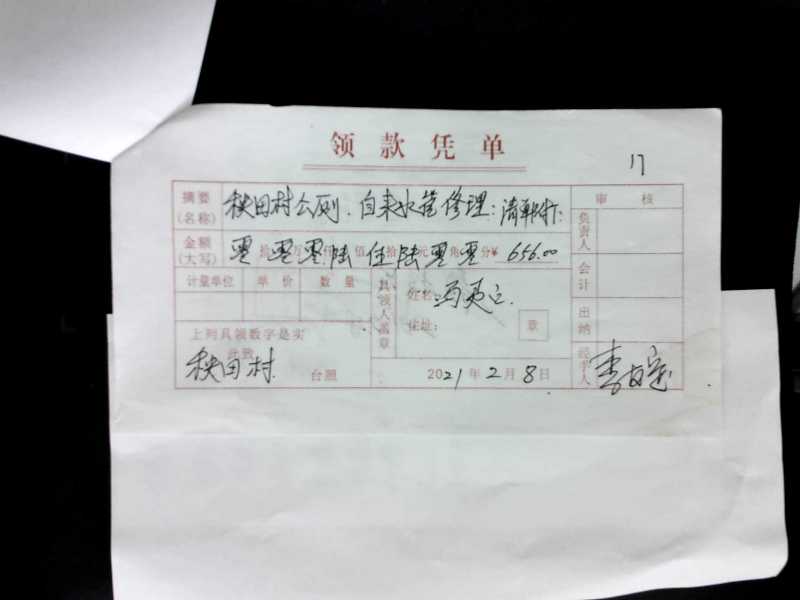 领款凭单
17
摘要(名称) 秧田村公厕.自来水管修理: 审核
金额(大写) 零拾零万零仟陆佰伍拾陆元零角零分¥ 656.00 负责人
计量单位 单价 数量 具领人盖章 姓名: 会计
住址: 章 出纳
上列具领数字是实
此致
秧田村 台照 2021年2月8日 经手人 李